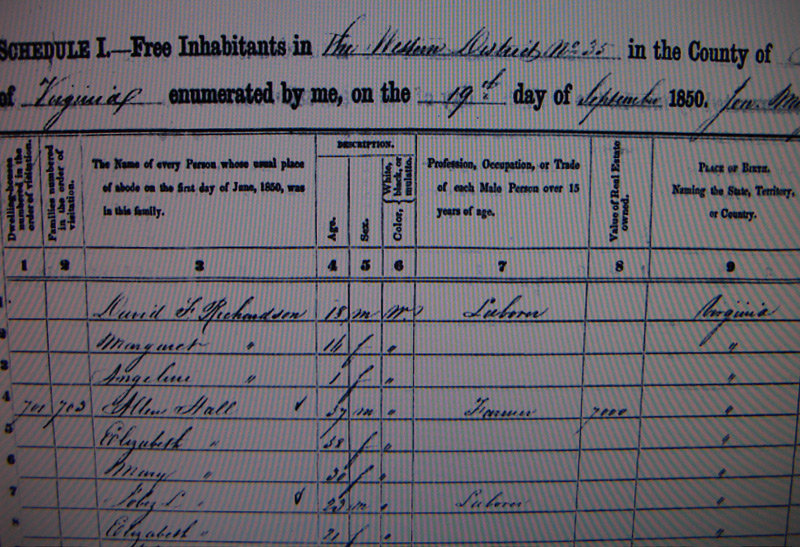 SCHEDULE I.—Free Inhabitants in The Western District No 35 in the County of
of Virginia enumerated by me, on the 19th day of September 1850.
DESCRIPTION.
Dwelling-houses numbered in the order of visitation.
Families numbered in the order of visitation.
The Name of every Person whose usual place of abode on the first day of June, 1850, was in this family.
Age.
Sex.
Color, { White, black, or mulatto.
Profession, Occupation, or Trade of each Male Person over 15 years of age.
Value of Real Estate owned.
PLACE OF BIRTH. Naming the State, Territory, or Country.
1 2 3 4 5 6 7 8 9
1 David F Richardson 18 m W. Laborer Virginia
2 Margaret " 14 f " "
3 Angeline " 1 f " "
4 701 703 Allen Hall 57 m " Farmer 7000 "
5 Elizabeth " 58 f " "
6 Mary " 30 f " "
7 L " 23 m " Laborer "
8 Elizabeth " 21 f " "